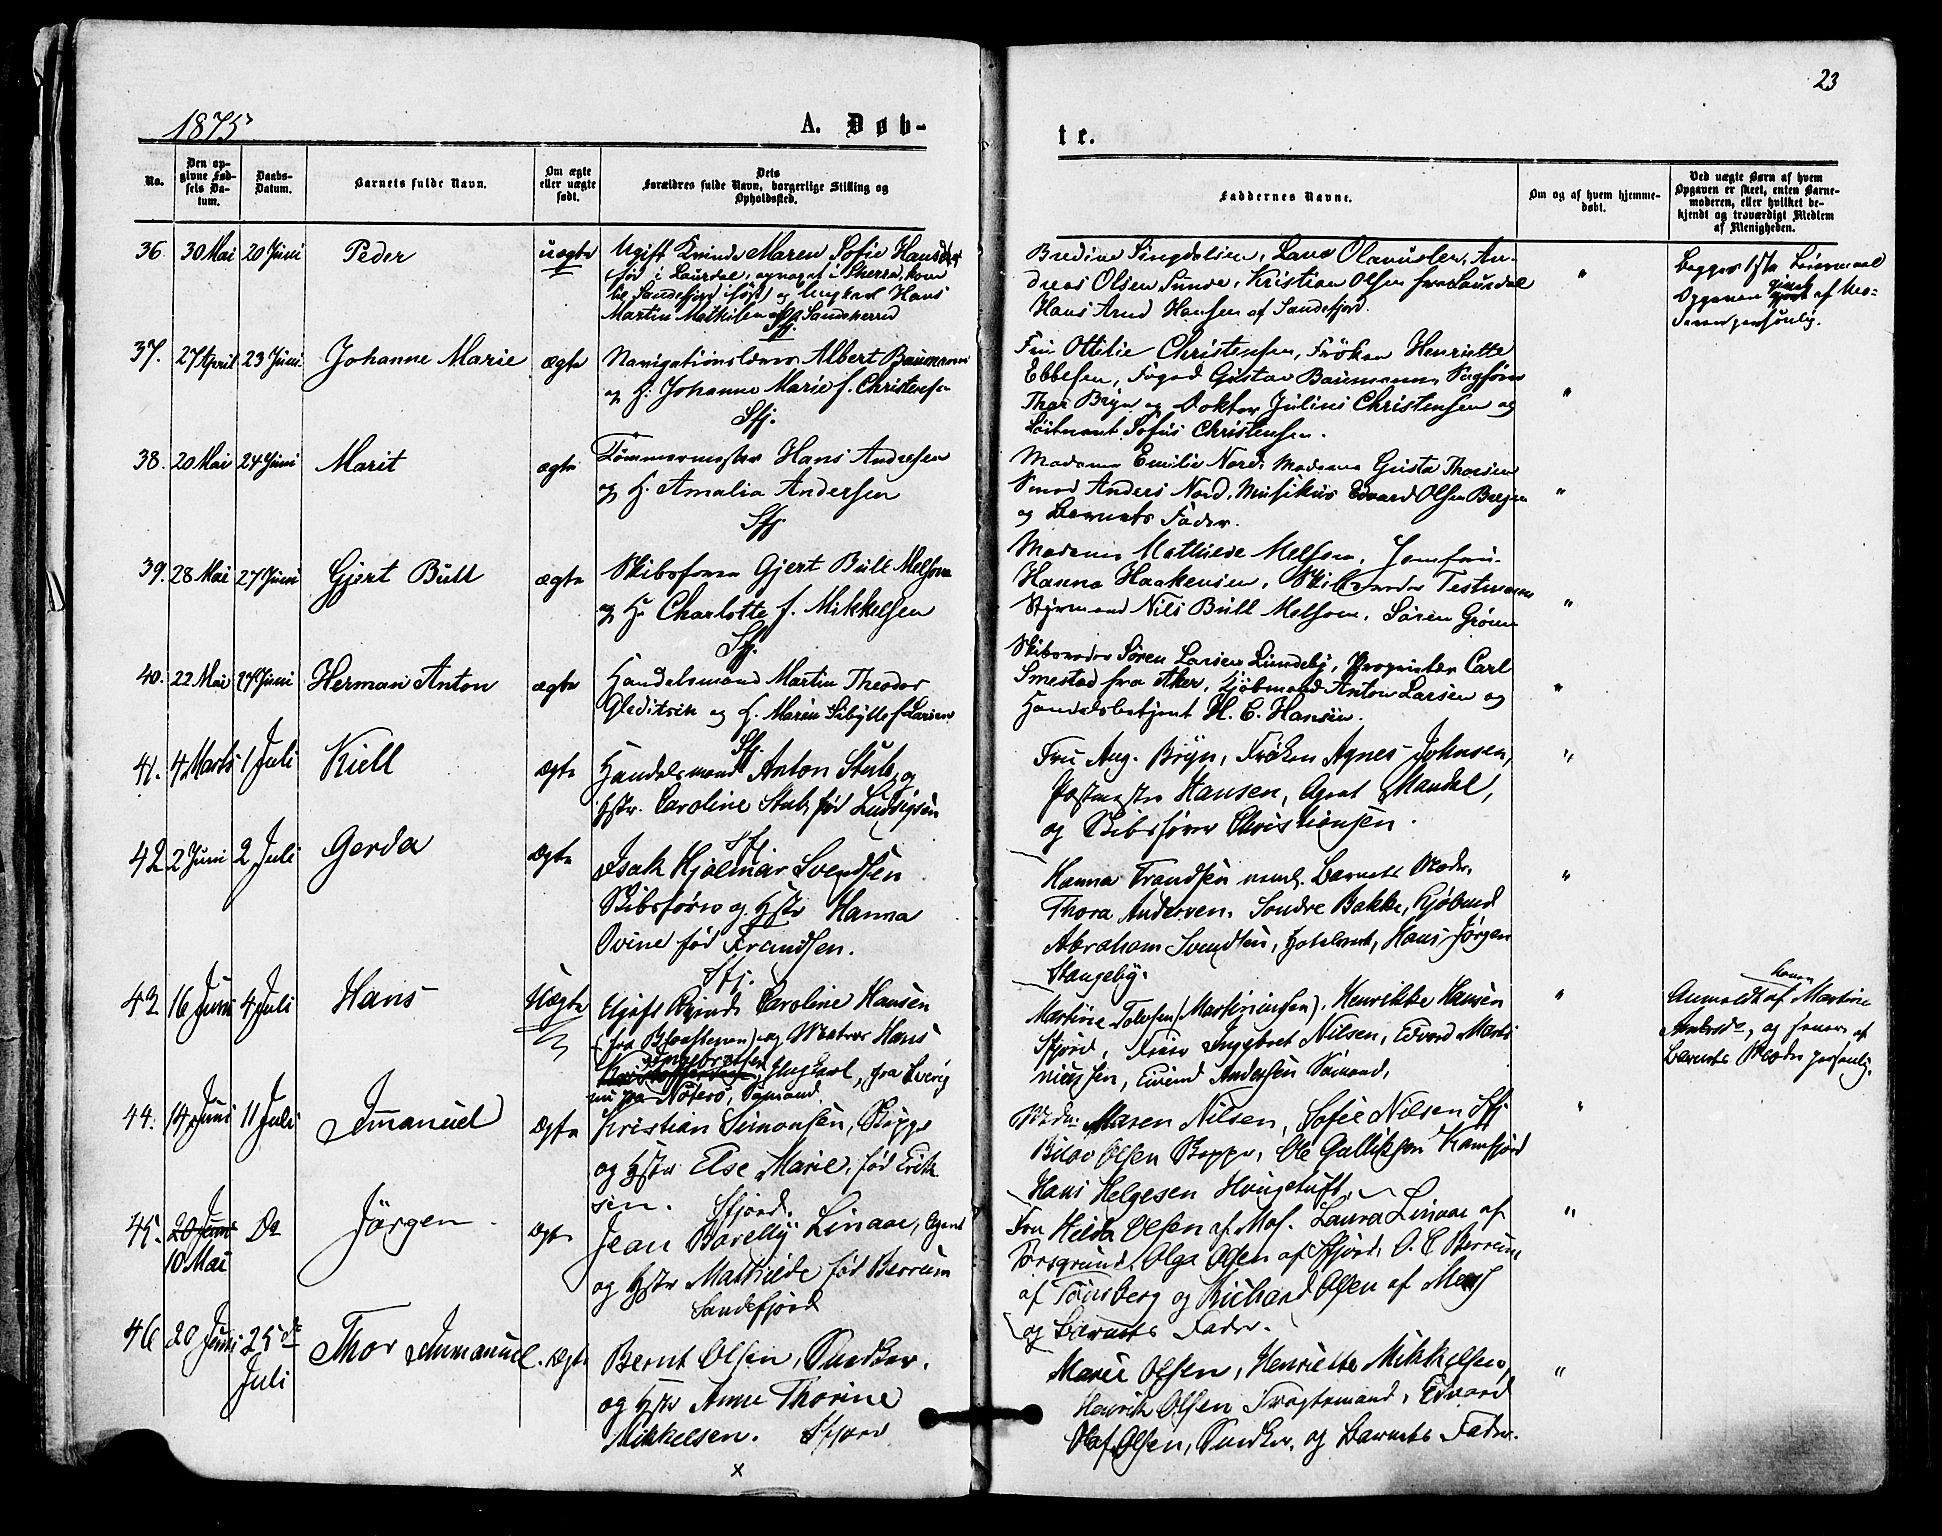 23
1875
A. Døb-
te.
No.
Den opgivne Fødsels Datum.
Daabs-Datum.
Barnets fulde Navn.
Om ægte eller uægte født.
Dets Forældres fulde Navn, borgerlige Stilling og Opholdssted.
Faddernes Navne.
Om og af hvem hjemmedøbt.
Ved uægte Børn af hvem Opgaven er skeet, enten Barnemoderen, eller hvilket bekjendt og troværdigt Medlem af Menigheden.
36. 30 Mai 20 Juni Peder uægte Ugift Kvinde Maren Sofie Hansdtr
født i Laurdal, opnoget i Skerra, kom
til Sandefjord og Ungkarl Hans
Martin Mathisen Sandeherred
Sfj.
Andreas Olsen Sunde, Kristian Olsen fra Laurdal
Hans Arnd Hansen af Sandefjord. "
Begges 1ste Leiermaal
Opgaven af Mo-
deren personlig.
37. 27 April 23 Juni Johanne Marie ægte Navigationslærer Albert Baumann
og H. Johanne Marie f. Christensen
Sfj.
Fru Ottilie Christensen, Frøken Henriette
Ebbesen, Foged Gustav Baumann, Sagfører
Thor Bryn og Doktor Julius Christensen og
Løitnant Sofus Christensen. "
38. 20 Mai 24 Juni Marit ægte Tømmermester Hans Andersen
og H. Amalia Andersen
Sfj
Madame Emilie Nord, Madame Gusta Thorsen
Smed Anders Nord, Musikus Edvard Olsen
og Barnets Fader. "
39. 28 Mai 27 Juni Gjert Bull ægte Skibsfører Gjert Bull Melsom
og H. Charlotte f. Mikkelsen
Sfj.
Madame Mathilde Melsom, Jomfru
Hanna Haakensen, Skibsreder Testmann
Styrmand Nils Bull Melsom, Søren Grønn "
40. 22 Mai 27 Juni Herman Anton ægte Handelsmand Martin Theodor
Gleditsch og H. Maren Sibylle f. Larsen
Sfj.
Skibsreder Søren Larsen Lindeby, Proprietær Carl
Smestad fra Aker, Kjøbmand Anton Larsen og
Handelsbetjent H. C. Hansen. "
41. 4 Marts 1 Juli Kiell Ægte Handelsmand Anton Stub, og
Hstr. Caroline Stub, født Ludvigsen
Sfj
Fru Aug. Bryn, Frøken Agnes Johnsen,
Postmester Hansen, Agent Mandel,
og Skibsfører Christiansen. "
42 2 Juni 2 Juli Gerda Ægte Isak Hjalmar Svendsen
Skibsfører og Hstr Hanna
Ovine født Frandsen.
Sfj.
Hanna Frandsen Barnets Moder,
Thora Andersen, Sondre Bakke,
Abraham Svendsen, Hans Jørgen
Stangeby. "
43 16 Juni 4 Juli Hans Uægte Ugift Kvinde Caroline Hansen
og Matros Hans
Ingebretsen Ungkarl, fra Sverig
nu paa Nøterø, Sømand.
Martine Tolvsen (Martiniusen), Henrikke Hansen
Sfjord, Ingeborg Nilsen, Edvard Marti-
niussen, Eivind Andersen Sømand, "
Anmeldt af Martine
og senere af
Barnets Moder personlig.
44. 14 Juni 11 Juli Immanuel Ægte Kristian Simonsen, Skipper
og Hstr Else Marie, født Erik-
sen. Sfjord.
Madm: Maren Nilsen, Sofie Nilsen Sfj
Olsen Skipper, Ole Gulliksen Kamfjord
Hans Helgesen Hougetuft, "
45. 20 Juni
10 Mai Do Jørgen Ægte Jean Linaae, Agent
og Hstr Mathilde født Berrum
Sandefjord
Fru Helda Olsen af Mos. Laura Linaae af
Porsgrund, Olga Olsen af Sfjord, O. C. Berrum
af Tønsberg og Richard Olsen af Moss
og Barnets Fader. "
46 20 Juni 25de Juli Thor Immanuel. Ægte Bernt Olsen, Snedker,
og Hstr Anne Thorine
Mikkelsen. Sfjord
Marie Olsen, Henriette Mikkelsen,
Henrik Olsen Fragtemand, Edvard
Olaf Olsen, Snedker, og Barnets Fader. "
x